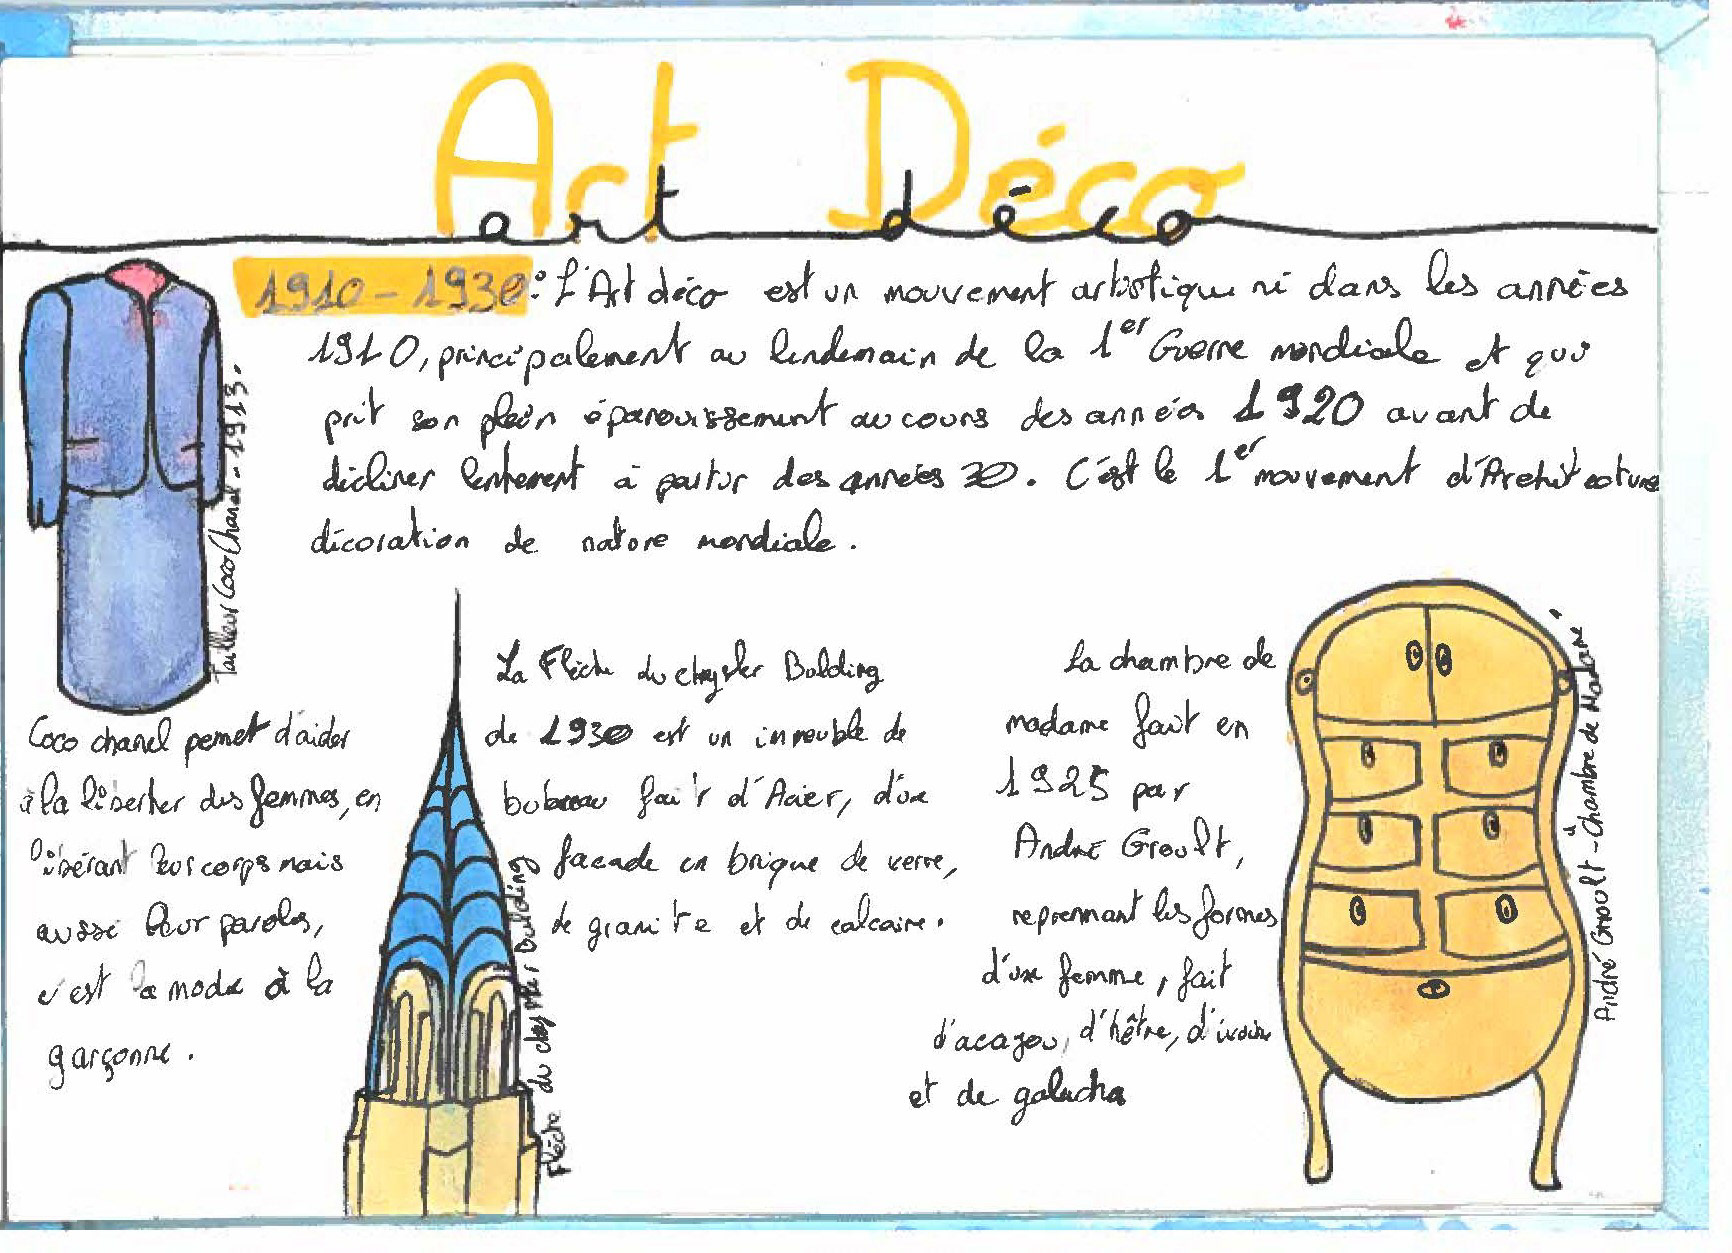 Art Déco
art déco
1910 - 1930 : L'Art déco est un mouvement artistique né dans les années
1910, principalement au lendemain de la 1er Guerre mondiale et qui
prit son plein épanouissement au cours des années 1920 avant de
décliner lentement à partir des années 30. C'est le 1er mouvement d'Architecture
décoration de nature mondiale.
Tailleur Coco Chanel - 1913.
Coco chanel permet d'aider
à la liberter des femmes, en
libérant leur corps mais
aussi leur paroles,
c'est la mode à la
garçonne.
La Flèche du chrysler Bulding
de 1930 est un immeuble de
fait d'Acier, d'une
facade en brique de verre,
de granite et de calcaire.
Flèche du chrysler Bulding
La chambre de
madame fait en
1925 par
André Groult,
reprennant les formes
d'une femme, fait
d'acajou, d'hêtre, d'ivoire
et de galucha
André Groult - Chambre de Madame